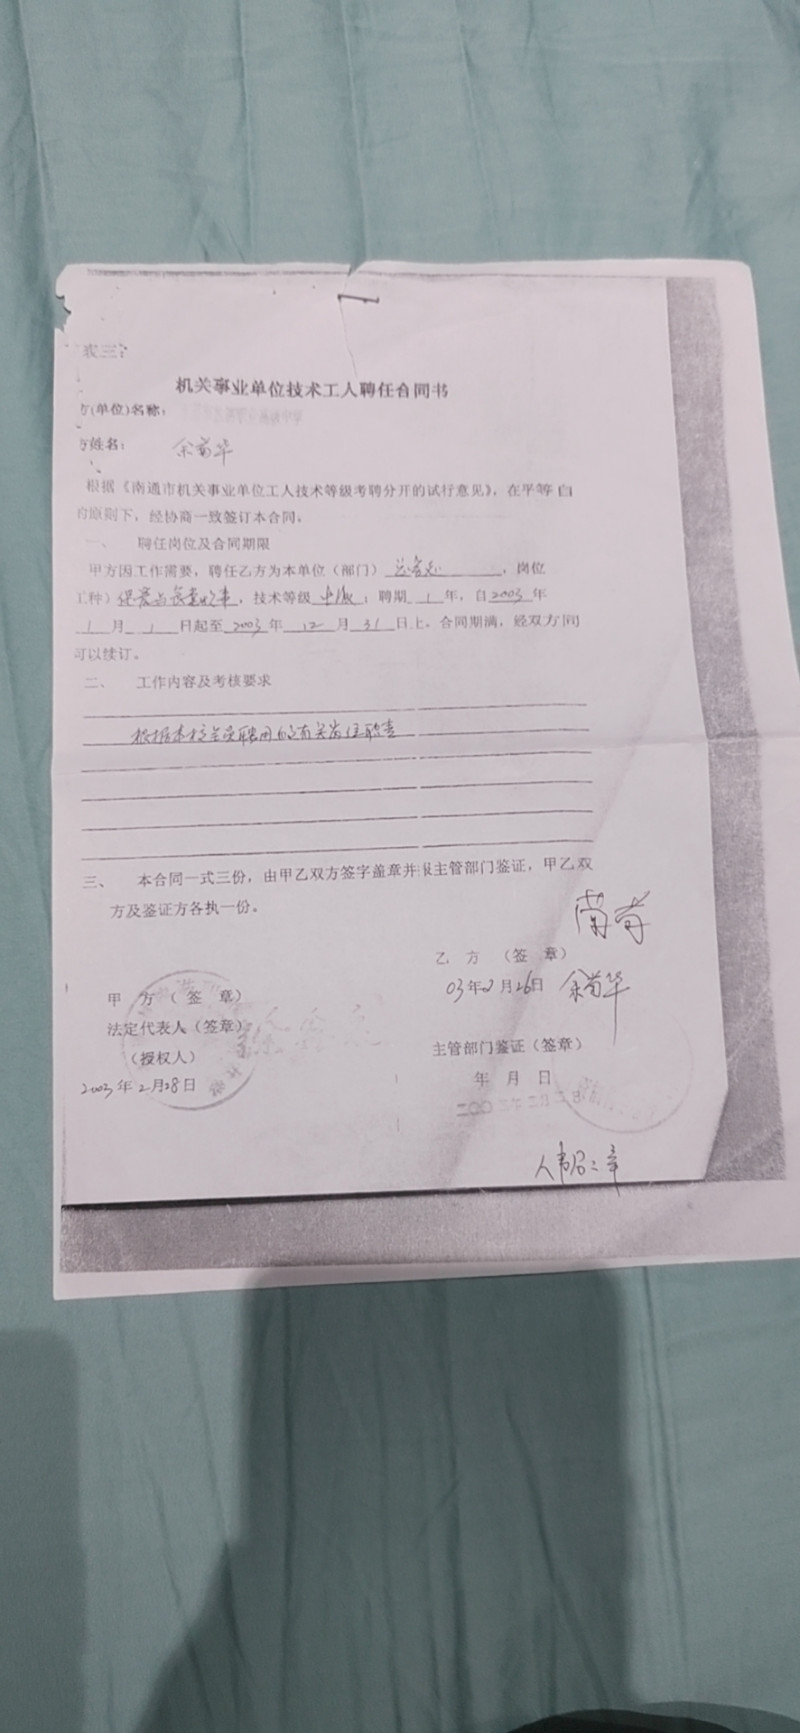 表三
机关事业单位技术工人聘任合同书
方(单位)名称：
方姓名： 余菊华
根据《南通市机关事业单位工人技术等级考聘分开的试行意见》，在平等自
的原则下，经协商一致签订本合同。
一、 聘任岗位及合同期限
甲方因工作需要，聘任乙方为本单位（部门），岗位
工种），技术等级 中级 ；聘期 1 年，自 2003 年
1 月 1 日起至 2003 年 12 月 31 日止。合同期满，经双方同
可以续订。
二、 工作内容及考核要求
根据本校 聘用的有关岗位职责
三、 本合同一式三份，由甲乙双方签字盖章并报主管部门鉴证，甲乙双
方及鉴证方各执一份。
乙 方 （签 章）
03年2月26日 余菊华
甲 方（ 签 章）
法定代表人（签章）
（授权人）
2003年2月28日
主管部门鉴证（签章）
年 月 日